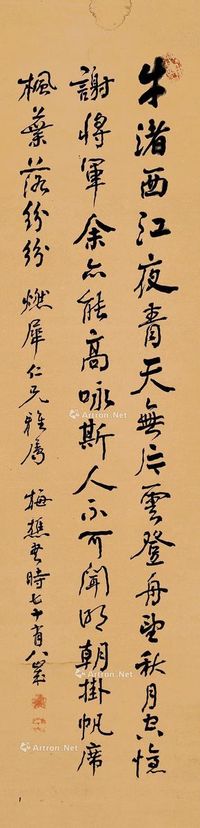 牛渚西江夜青天無片雲登舟望秋月空憶
謝將軍余亦能高咏斯人不可聞明朝掛帆席
楓葉落紛紛 燃犀仁兄雅屬 梅樵書時七十有八歲
Artron.Net
Artron.Net
Artron.Net
Artron.Net